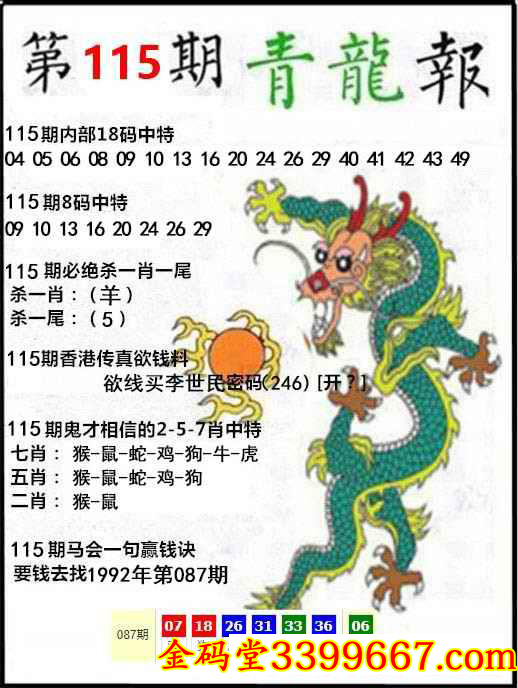 第115期青龍報
115期内部18码中特
04 05 06 08 09 10 13 16 20 24 26 29 40 41 42 43 49
115期8码中特
09 10 13 16 20 24 26 29
115期必绝杀一肖一尾
杀一肖：(羊)
杀一尾：(5)
115期香港传真欲钱料
欲线买李世民密码(246) [开?]
115期鬼才相信的2-5-7肖中特
七肖：猴-鼠-蛇-鸡-狗-牛-虎
五肖：猴-鼠-蛇-鸡-狗
二肖：猴-鼠
115期马会一句赢钱诀
要钱去找1992年第087期
087期 07 18 26 31 33 36 06
金码堂3399667.com